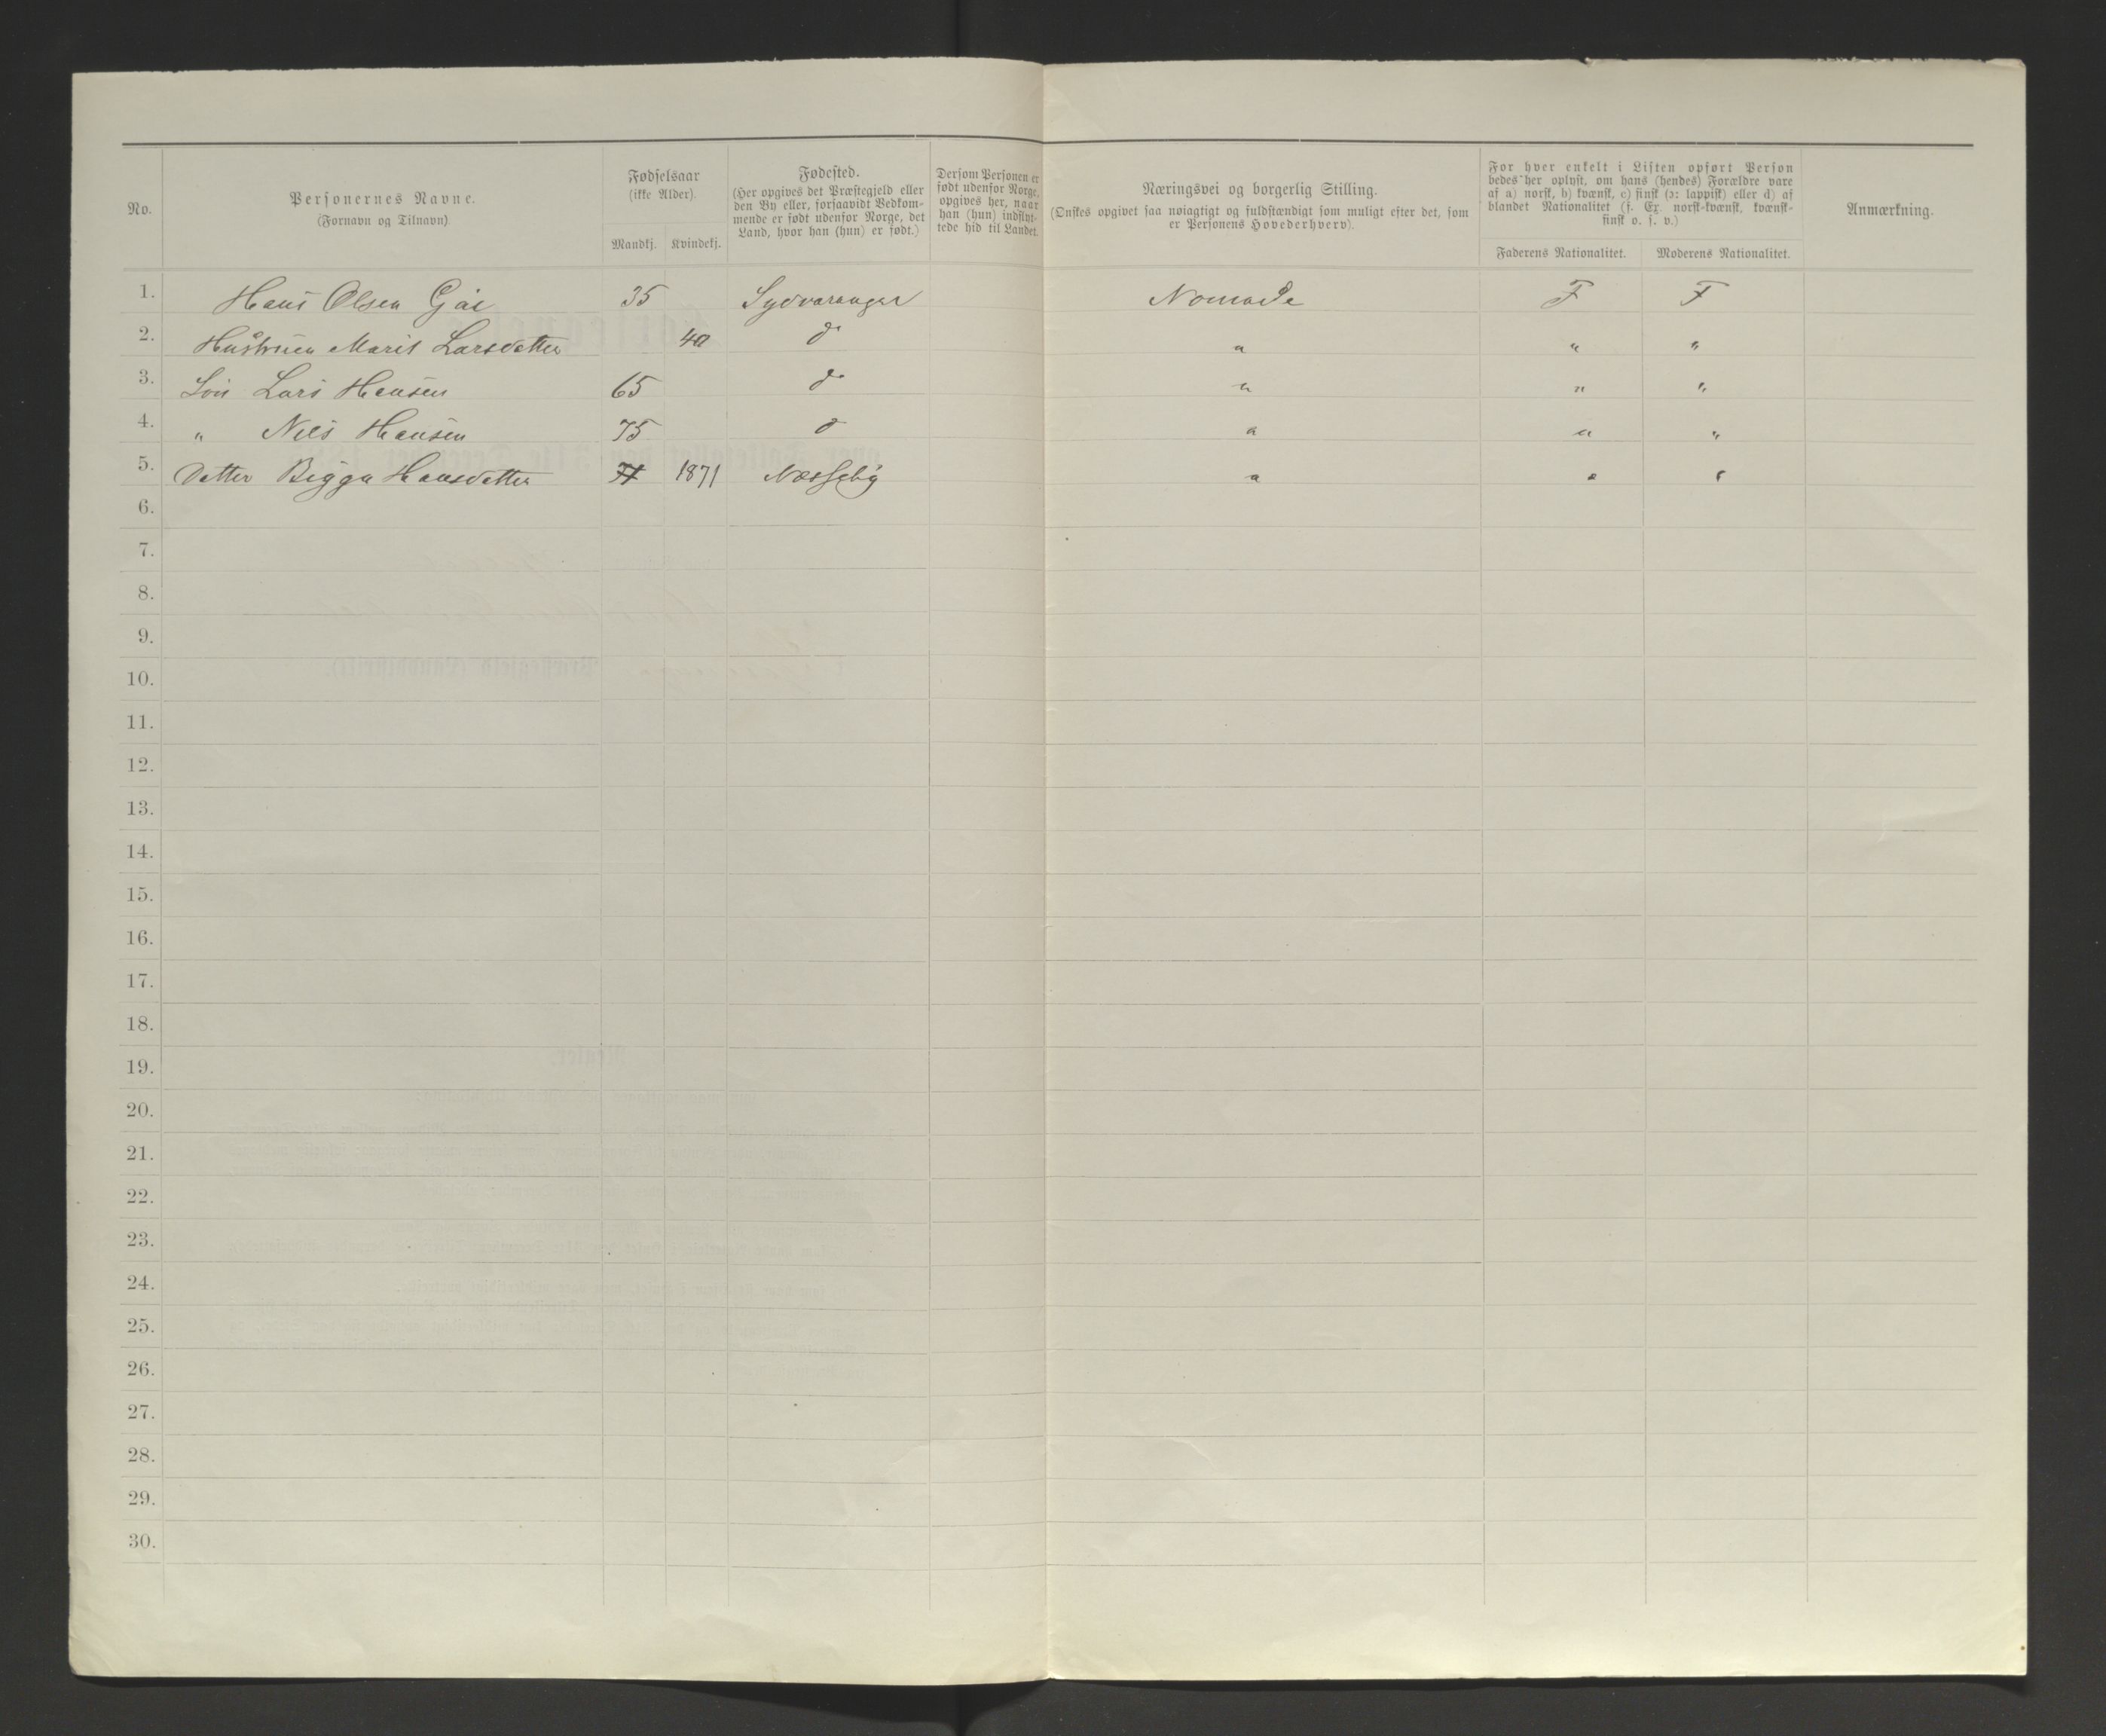 No.
Personernes Navne.
(Fornavn og Tilnavn)
Fødselsaar
(ikke Alder).
Mandkj. Kvindekj.
Fødested.
(Her opgives det Præstegjeld eller
den By eller, forsaavidt Vedkom-
mende er født udenfor Norge, det
Land, hvor han (hun) er født.)
Dersom Personen er
født udenfor Norge,
opgives her, naar
han (hun) indflyt-
tede hid til Landet.
Næringsvei og borgerlig Stilling.
(Ønskes opgivet saa nøiagtigt og fuldstændigt som muligt efter det, som
er Personens Hovederhverv).
For hver enkelt i Listen opført Person
bedes her oplyst, om hans (hendes) Forældre vare
af a) norsk, b) kvænsk, c) finsk (ɔ: lappisk) eller d) af
blandet Nationalitet (f. Ex. norsk-kvænsk, kvænsk-
finsk o. s. v.)
Faderens Nationalitet. Moderens Nationalitet.
Anmærkning.
1. Hans Olsen 35 Sydvaranger Nomade F F
2. Hustruen Marit Larsdatter 40 do " " "
3. Søn Lars Hansen 65 do " " "
4. " Nils Hansen 75 d " " "
5. Datter Bigga Hansdatter 71 1871 Næsseby " " "
6.
7.
8.
9.
10.
11.
12.
13.
14.
15.
16.
17.
18.
19.
20.
21.
22.
23.
24.
25.
26.
27.
28.
29.
30.